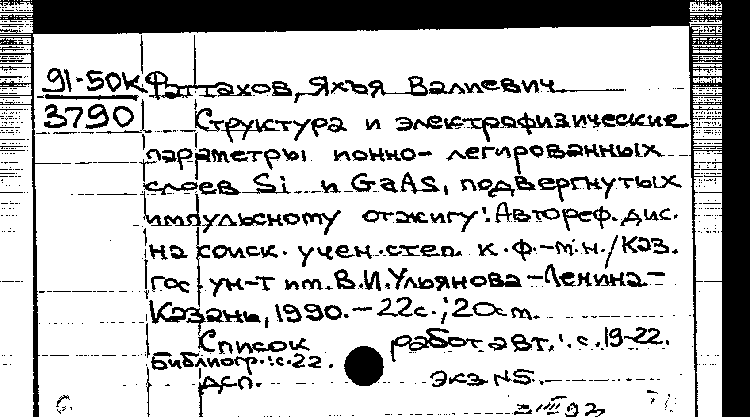 91-50к Фаттахов, Яхъя Валиевич
3790 Структура и электрофизические
параметры ионно-легированных
слоев Si и GaAs, подвергнутых
импульсному отжигу: Автореф. дис.
на соиск. учен. степ. к.ф.-м.н./Каз.
гос. ун-т им. В.И.Ульянова-Ленина-
Казань, 1990.-22с.; 20см.
Список работ авт.: с.19-22.
Библиогр.: с.22.
дсп. экз N5.